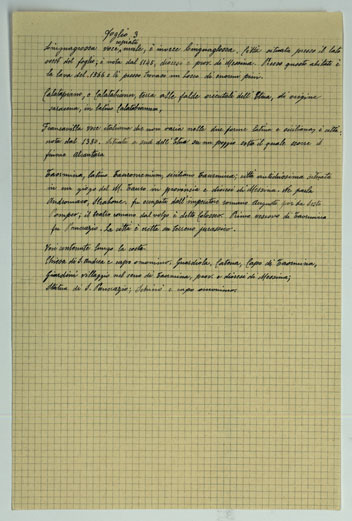 Foglio 3
usuale
Linguagrossa voce, è invece Linguaglossa. Città situata presso il lato
ovest del foglio, è nota dal 1145, diocesi e prov. di Messina. Presso questo abitato è
la lava del 1866 e là presso trovasi un bosco di enormi pini.
Calatabiano, o Calatabiano, terra alle falde orientali dell'Etna, di origine
saracena, in latino Calatabianum,
Francavilla voce italiana che non varia nelle due forme latina e siciliana; è città
nota dal 1330. Situata a nord dell'Etna su un poggio sotto il quale scorre il
fiume Alcantara
Taormina, latino Tauromenium, siciliano Taurmina; città antichissima situata
in un giogo del M. Tauro in provincia e diocesi di Messina. Ne parla
Andromaco, Strabone. fu occupata dall'imperatore romano Augusto
Pompeo; il teatro romano dal volgo è detto Colosseo. Primo vescovo di Taormina
fu Pancrazio. La città è eretta su terreno jurassico.
Voci contenute lungo la costa:
Chiesa di S. Andrea e capo omonimo. Guardiola, Catena, Capo di Taormina,
Giardini villaggio nel seno di Taormina, prov. e diocesi di Messina;
Statua di S. Pancrazio; Schisò e capo omonimo.